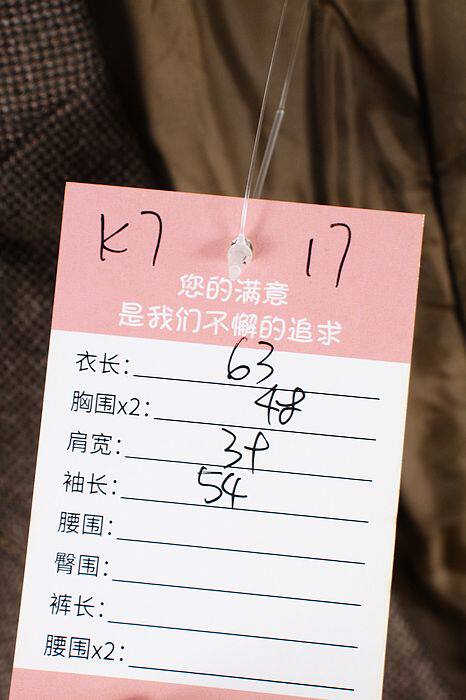 K7 17
您的满意
是我们不懈的追求
衣长: 63
胸围x2: 48
肩宽:
袖长: 54
腰围:
臀围:
裤长:
腰围x2: